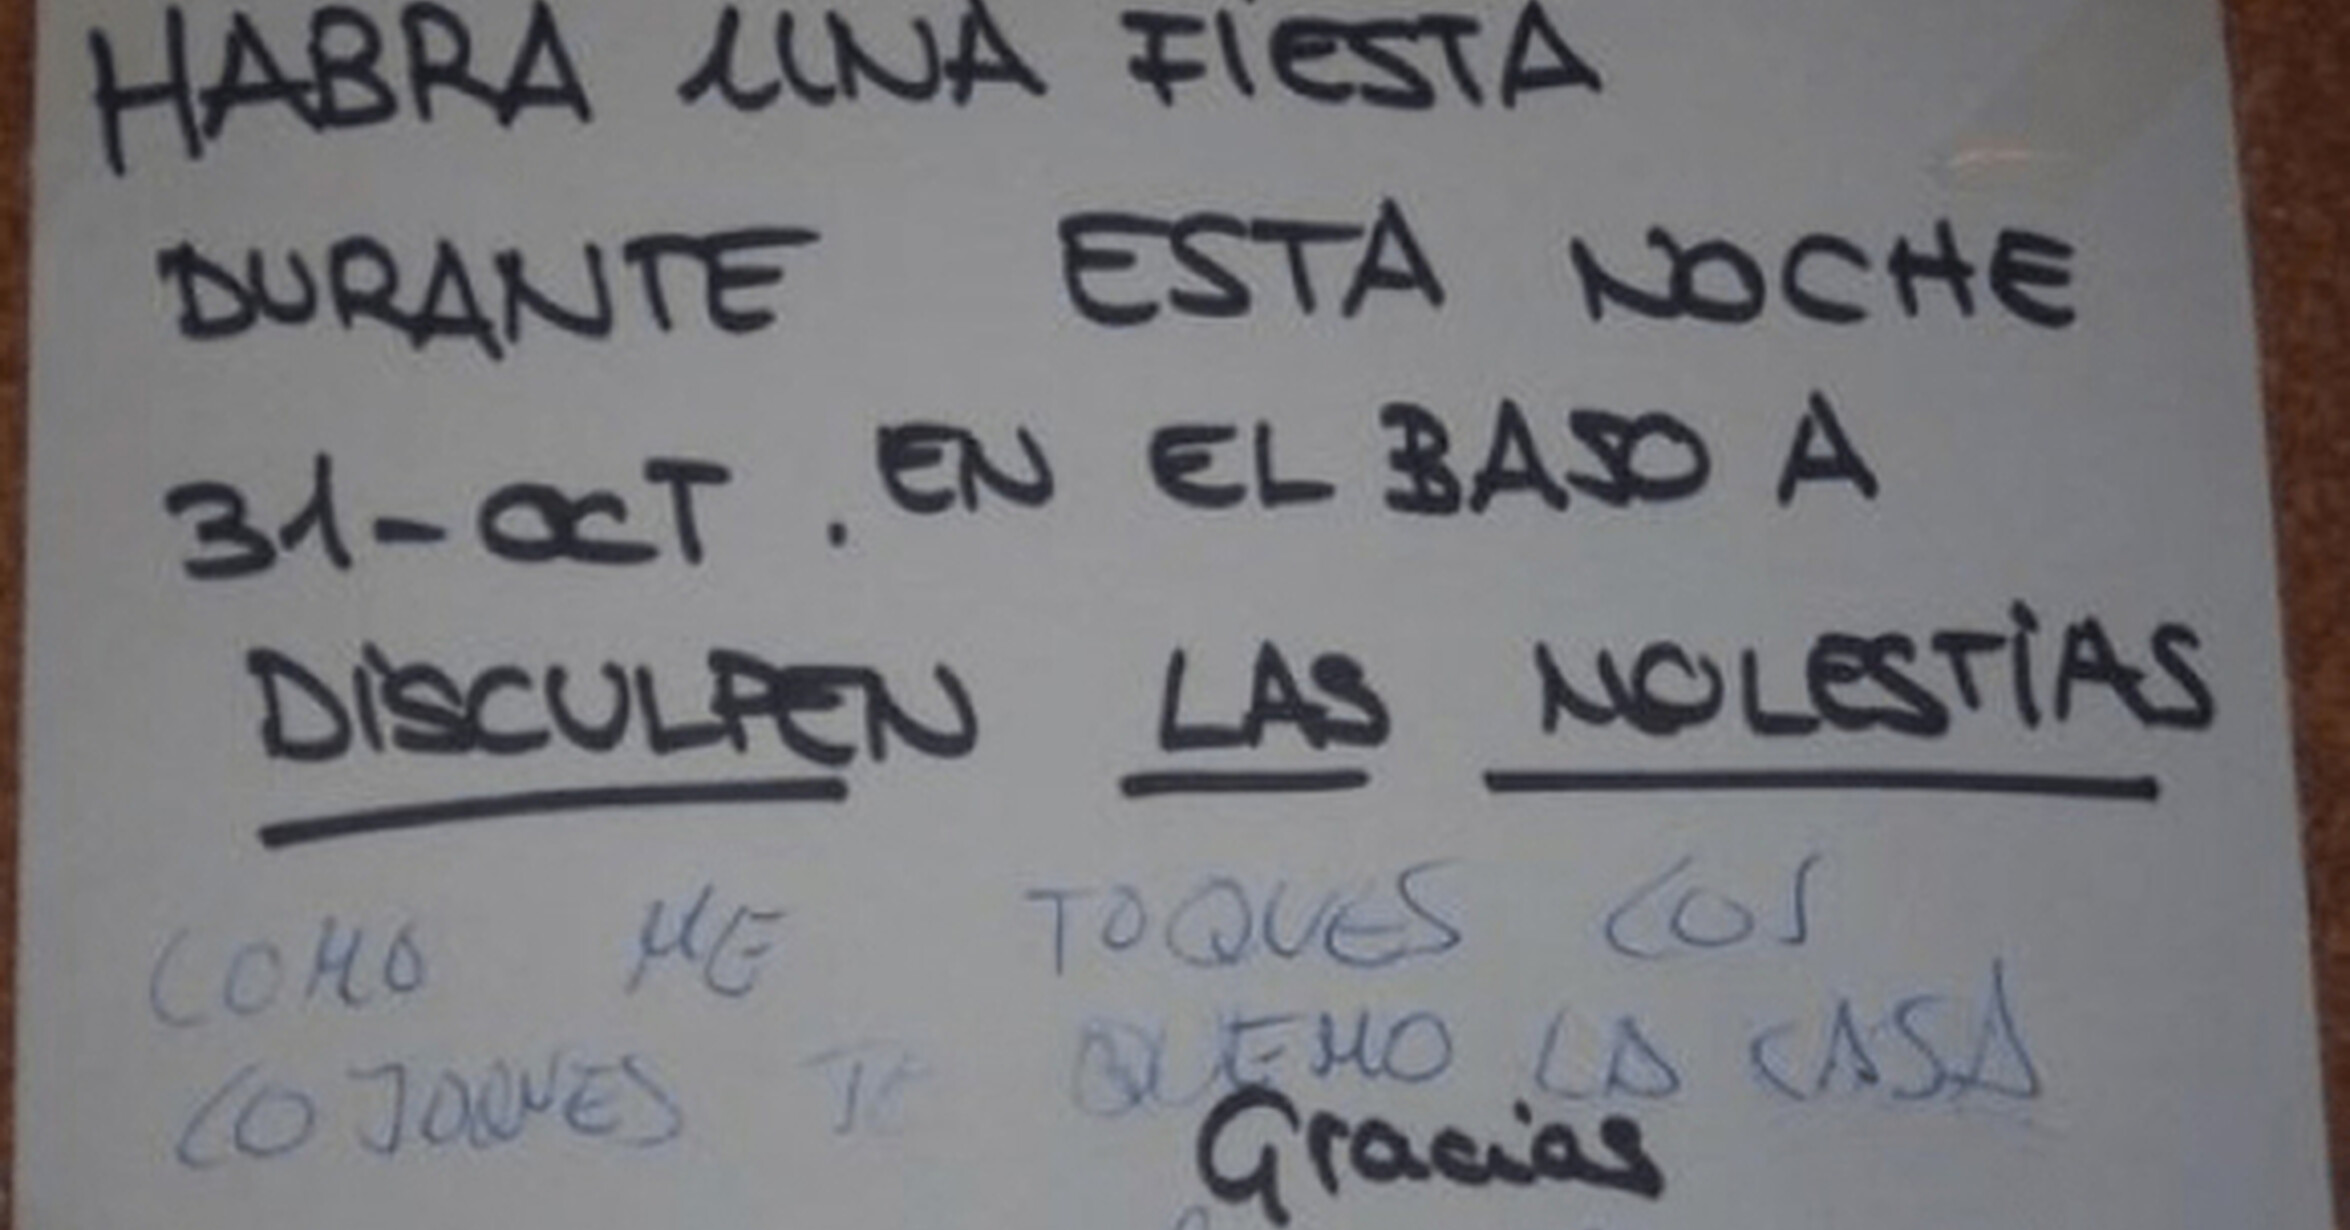 HABRA UNA FIESTA
DURANTE ESTA NOCHE
31-OCT. EN EL BAJO A
DISCULPEN LAS MOLESTIAS
COMO ME TOQUES LOS
COJONES TE QUEMO LA CASA
Gracias